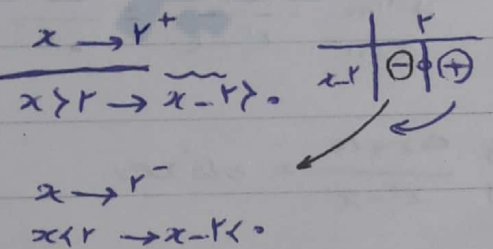 x → ۲⁺
x>۲ → x-۲>۰
۲
x-۲ | ⊖ | ⊕
x → ۲⁻
x<۲ → x-۲<۰